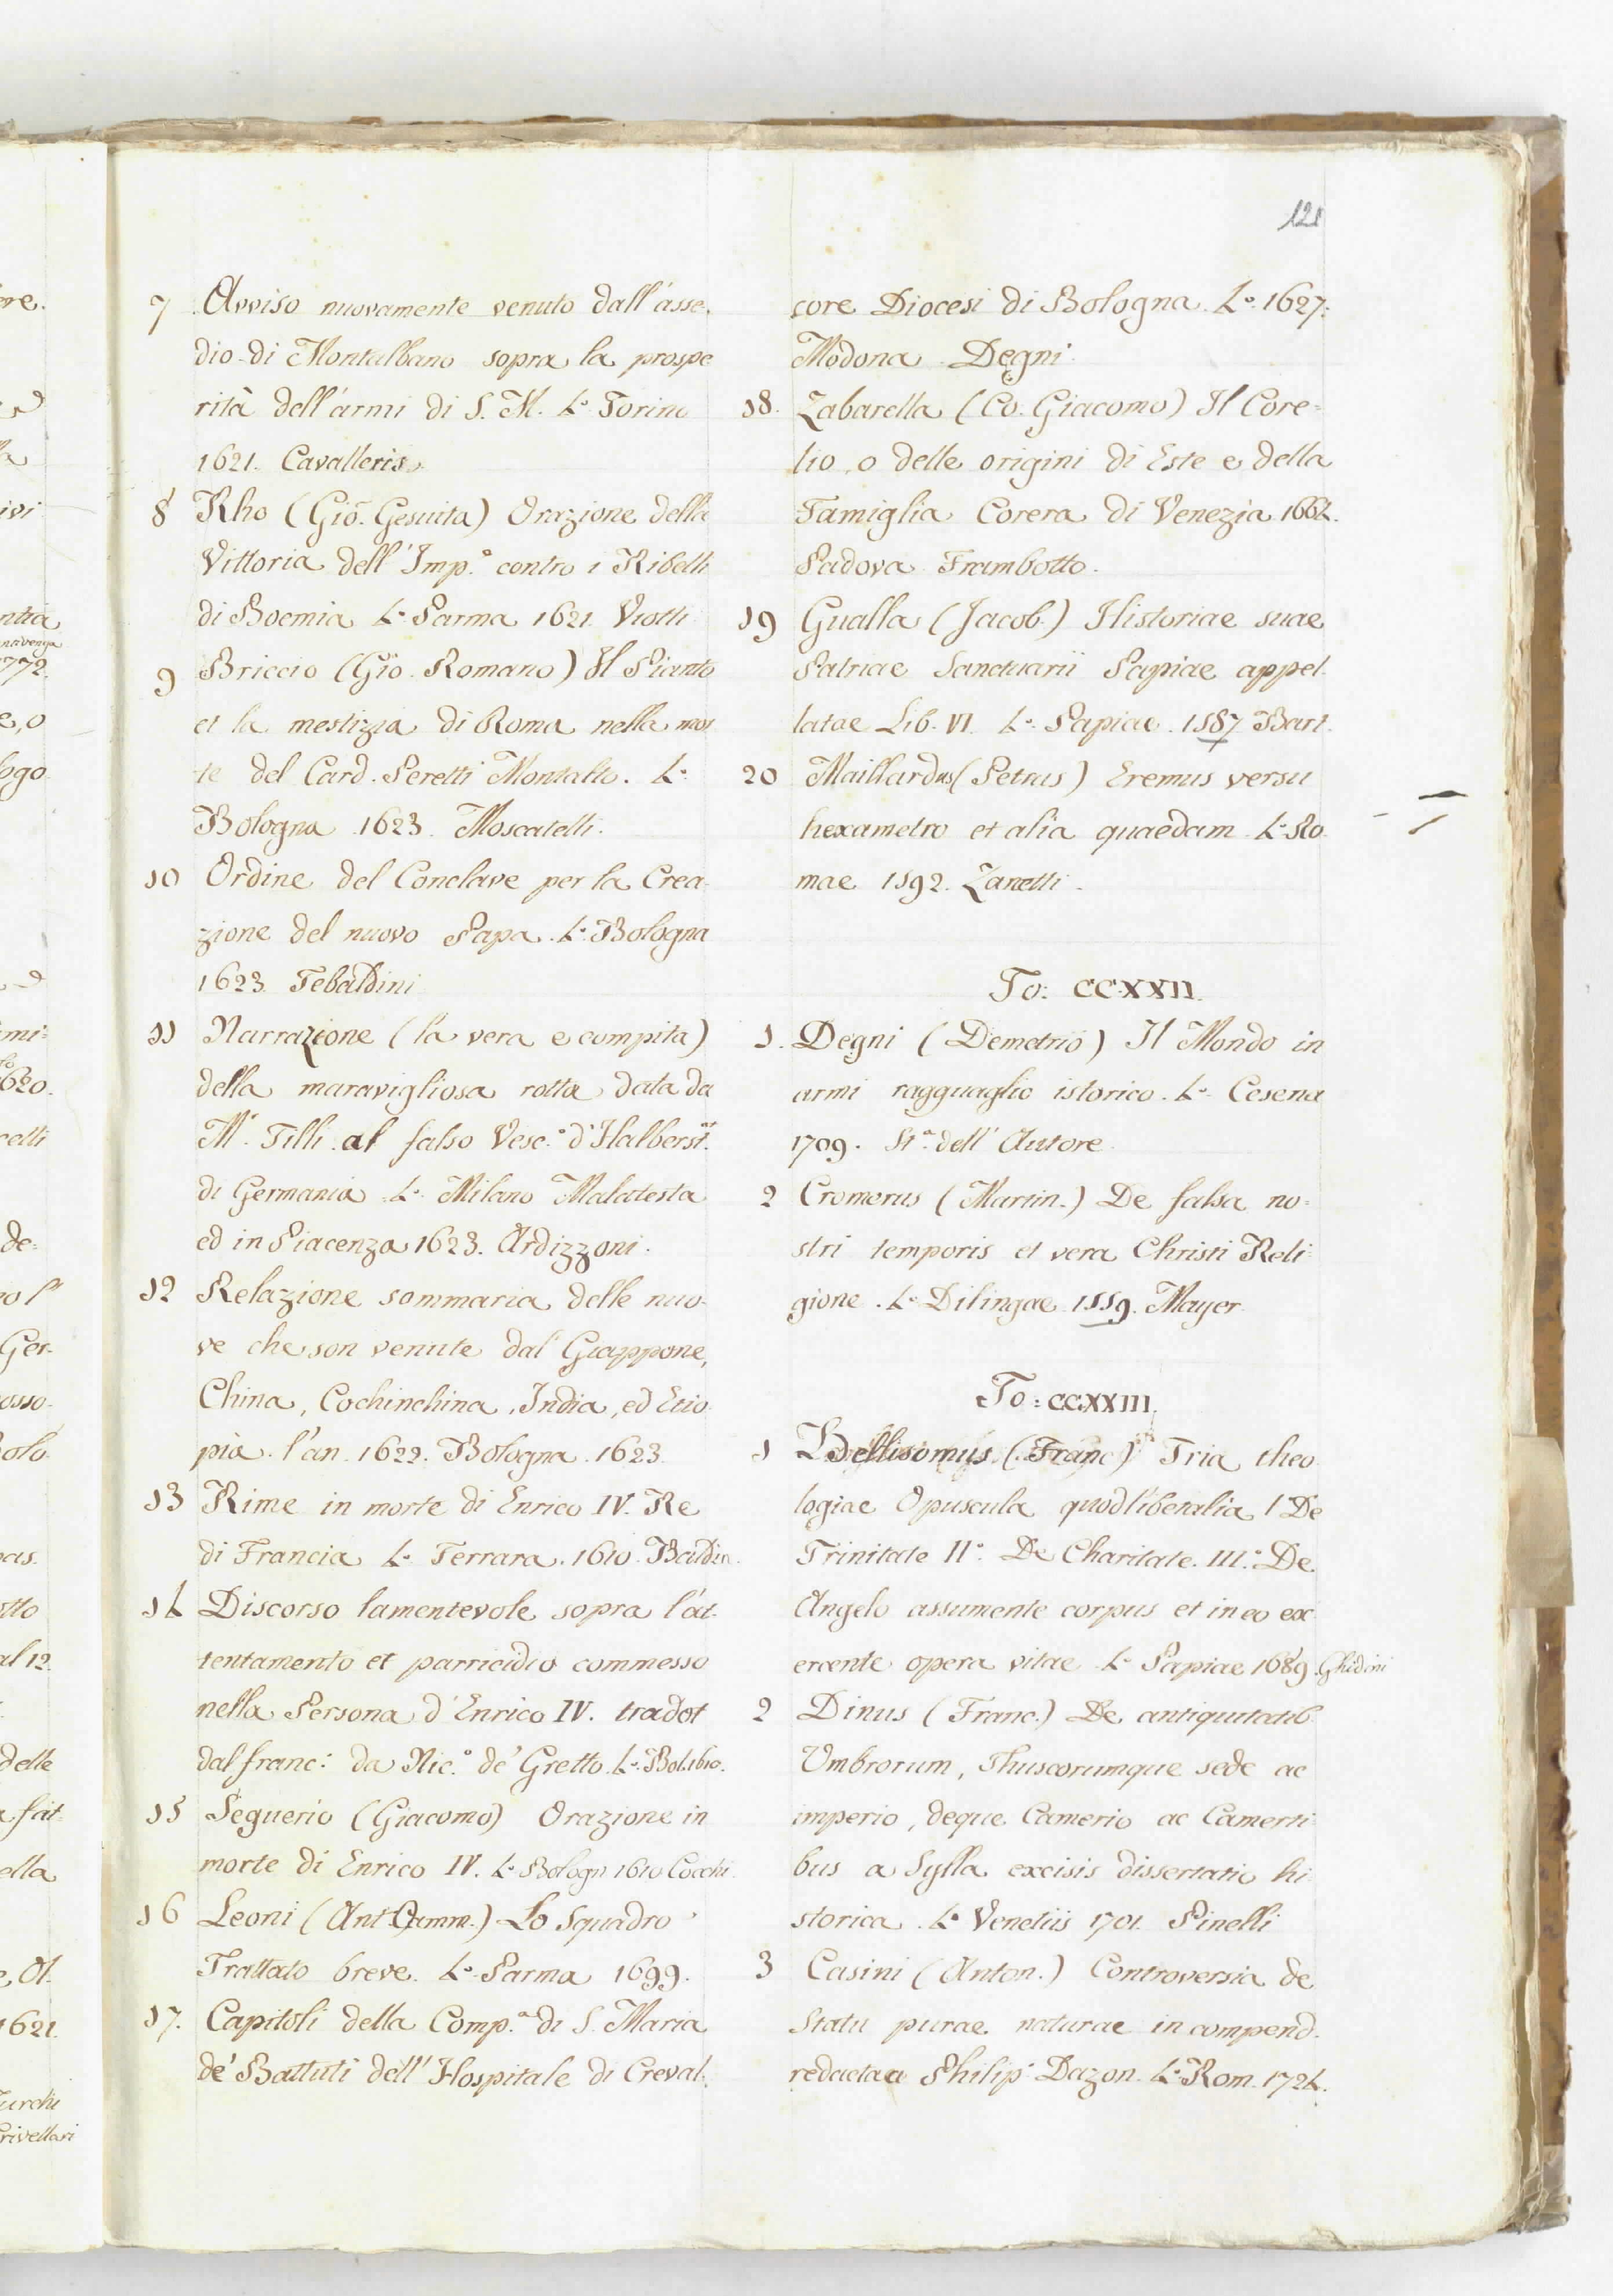 121
7 Avviso nuovamente venuto dall'asse-
dio di Montalbano sopra la prospe
rità dell'armi di S. M. 4.o Torino
1621. Cavalleris.
8 Rho (Gio. Gesuita) Orazione della
Vittoria dell'Imp.o contro i Ribelli
di Boemia 4.o Parma 1621. Viotti
9 Briccio (Gio. Romano) Il Pianto
et la mestizia di Roma nella mor
te del Card. Peretti Montalto. 4.o
Bologna 1623. Moscatelli.
10 Ordine del Conclave per la Crea-
zione del nuovo Papa. 4.o Bologna
1623. Tebaldini
11 Narrazione (la vera e compita)
della maravigliosa rotta data da
M.r Tilli al falso Vesc.o d'Halberst.at
di Germania 4.o Milano Malatesta
ed in Piacenza 1623. Ardizzoni.
12 Relazione sommaria delle nuo-
ve che son venute dal Giappone,
China, Cochinchina, India, ed Etio-
pia l'an. 1622. Bologna 1623.
13 Rime in morte di Enrico IV. Re
di Francia 4.o Ferrara. 1610. Baldin.
14 Discorso lamentevole sopra l'at-
tentamento et parricidio commesso
nella Persona d'Enrico IV. tradot
dal franc: da Nic.o de' Gretto. 4.o
15 Seguerio (Giacomo) Orazione in
morte di Enrico IV. 4.o Bologn 1610 Cocchi.
16 Leoni (Ant. ) Lo Squadro
Trattato breve. 4.o Parma 1699.
17. Capitoli della Comp.a di S. Maria
de' Battuti dell'Hospitale di Creval-
core Diocesi di Bologna. 4.o 1627.
Modona Degni.
18. Zabarella (Co. Giacomo) Il Core-
lio, o delle origini di Este e della
Famiglia Corera di Venezia 1664.
Padova Frambotto.
19 Gualla (Jacob.) Historiae suae
Patriae Sanctuarii Papiae appel-
latae Lib. VI. 4.o Papiae. 1587 Bart.
20 Maillardus (Petrus) Eremus versu
hexametro et alia quaedam 4.o Ro
mae 1592. Zanetti.
To: CCXXII.
1. Degni (Demetrio) Il Mondo in
armi ragguaglio istorico. 4.o Cesena
1709. St.a dell'Autore
2 Cromerus (Martin.) De falsa no-
stri temporis et vera Christi Reli-
gione. 4.o Dilingae 1559. Mayer
To: CCXXIII.
1 Bellisomus (Franc) Tria theo
logiae Opuscula quodliberalia I De
Trinitate II.o De Charitate. III.o De
Angelo assumente corpus et in eo ex
ercente opera vitae 4.o Papiae 1689. Ghidini
2 Dinus (Franc.) De antiquitatib.
Umbrorum, Thuscorumque sede ac
imperio, deque Camerio ac Camerti-
bus a Sylla excisis dissertatio hi-
storica. 4.o Venetiis 1701. Pinelli
3 Casini (Anton.) Controversia de
Statu purae naturae in compend.
redacta a Philip. Dazon. 4.o Rom. 1724.